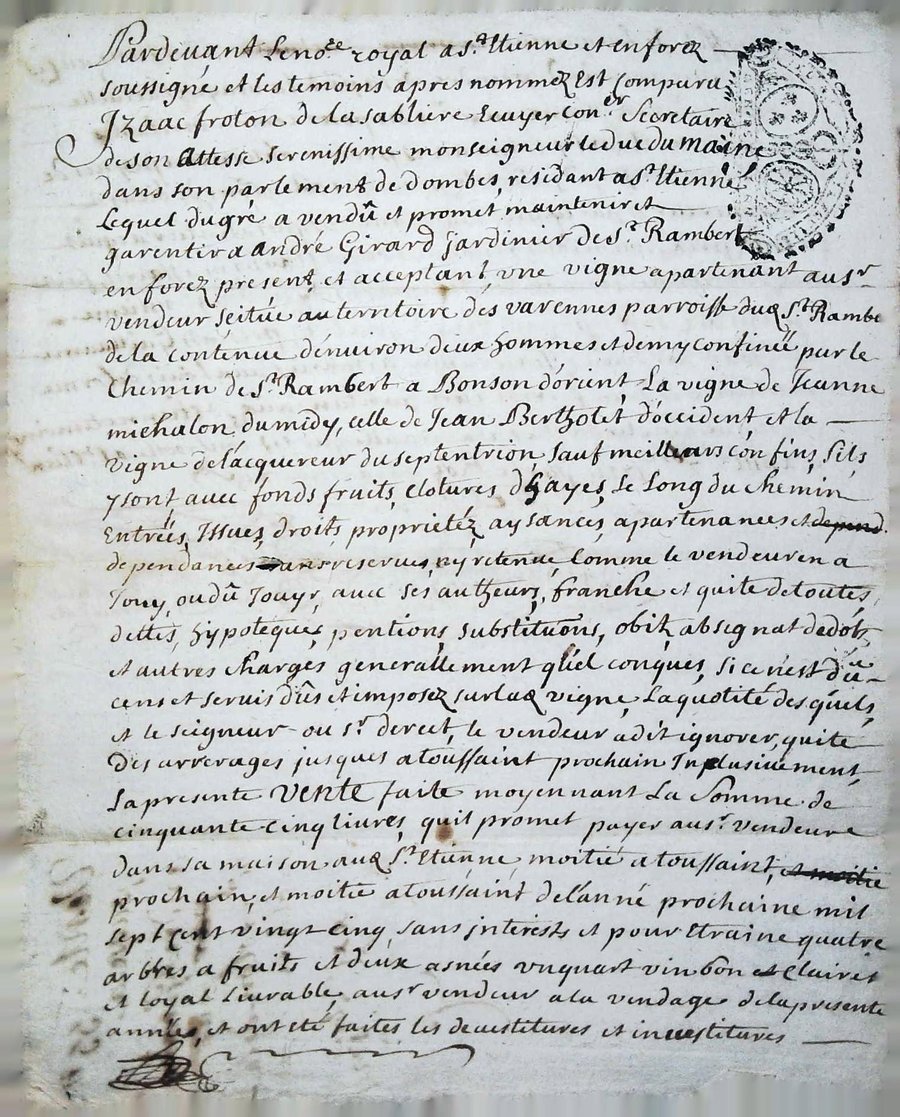 Pardevant Le no.re royal a S.t Etienne et en forez
soussigné et les temoins apres nommez Est Comparu
Izaac froton de la sabliere Ecuyer con.er Secretaire
de son Altesse serenissime monseigneur le duc du maine
dans son parlement de dombes, residant a S.t Etienne
Lequel du gré a vendû et promet maintenir et
garentir a andré Girard Jardinier de S.t Rambert
en forez present, et acceptant, vne vigne apartenant au s.r
vendeur seitüe au territoire des varennes parroisse dud S.t Rambe
de la contenüe d'enuiron deux hommes et demy confinée par le
Chemin de S.t Rambert a Bonson d'orient La vigne de Jeanne
michalon du midy, celle de Jean Bertholet d'occident et la
vigne de lacquereur du septentrion sauf meilleurs confins, sils
y sont, avec fonds fruits, clotures d'hayes, Le Long du chemin
Entrées, Issues, droits proprietéz aysances, apartenances et depend.
dependances sans reserves, ny retenue, Comme le vendeur en a
Jouy, ou dû Jouyr, avec ses autheurs, franche et quite de toutes
dettes, hypoteques, pentions, substituons, obitz, absegnat de dots,
et autres charges generallement quel conques, si ce n'est du
cens et servis dûs et imposez sur lad vigne, La quotité des quels,
et le seigneur ou s.r derect, le vendeur a dit ignorer, quite
des arrerages jusques a toussaint prochain Inclusivement,
La presente vente faite moyennant La Somme de
cinquante-cinq livres, quil promet payer au s.r vendeur
dans sa maison aud S.t Etienne moitié a toussaint, et moitie
prochain, et moitie a toussaint de l'anné prochaine mil
sept cent vingt-cinq sans interests et pour Etraine quatre
arbres a fruits et deux asnées vn quart vin bon et Clairet
et loyal Livrable au s.r vendeur a la vendage de la presente
année, et ont eté faites les devestitures et investitures